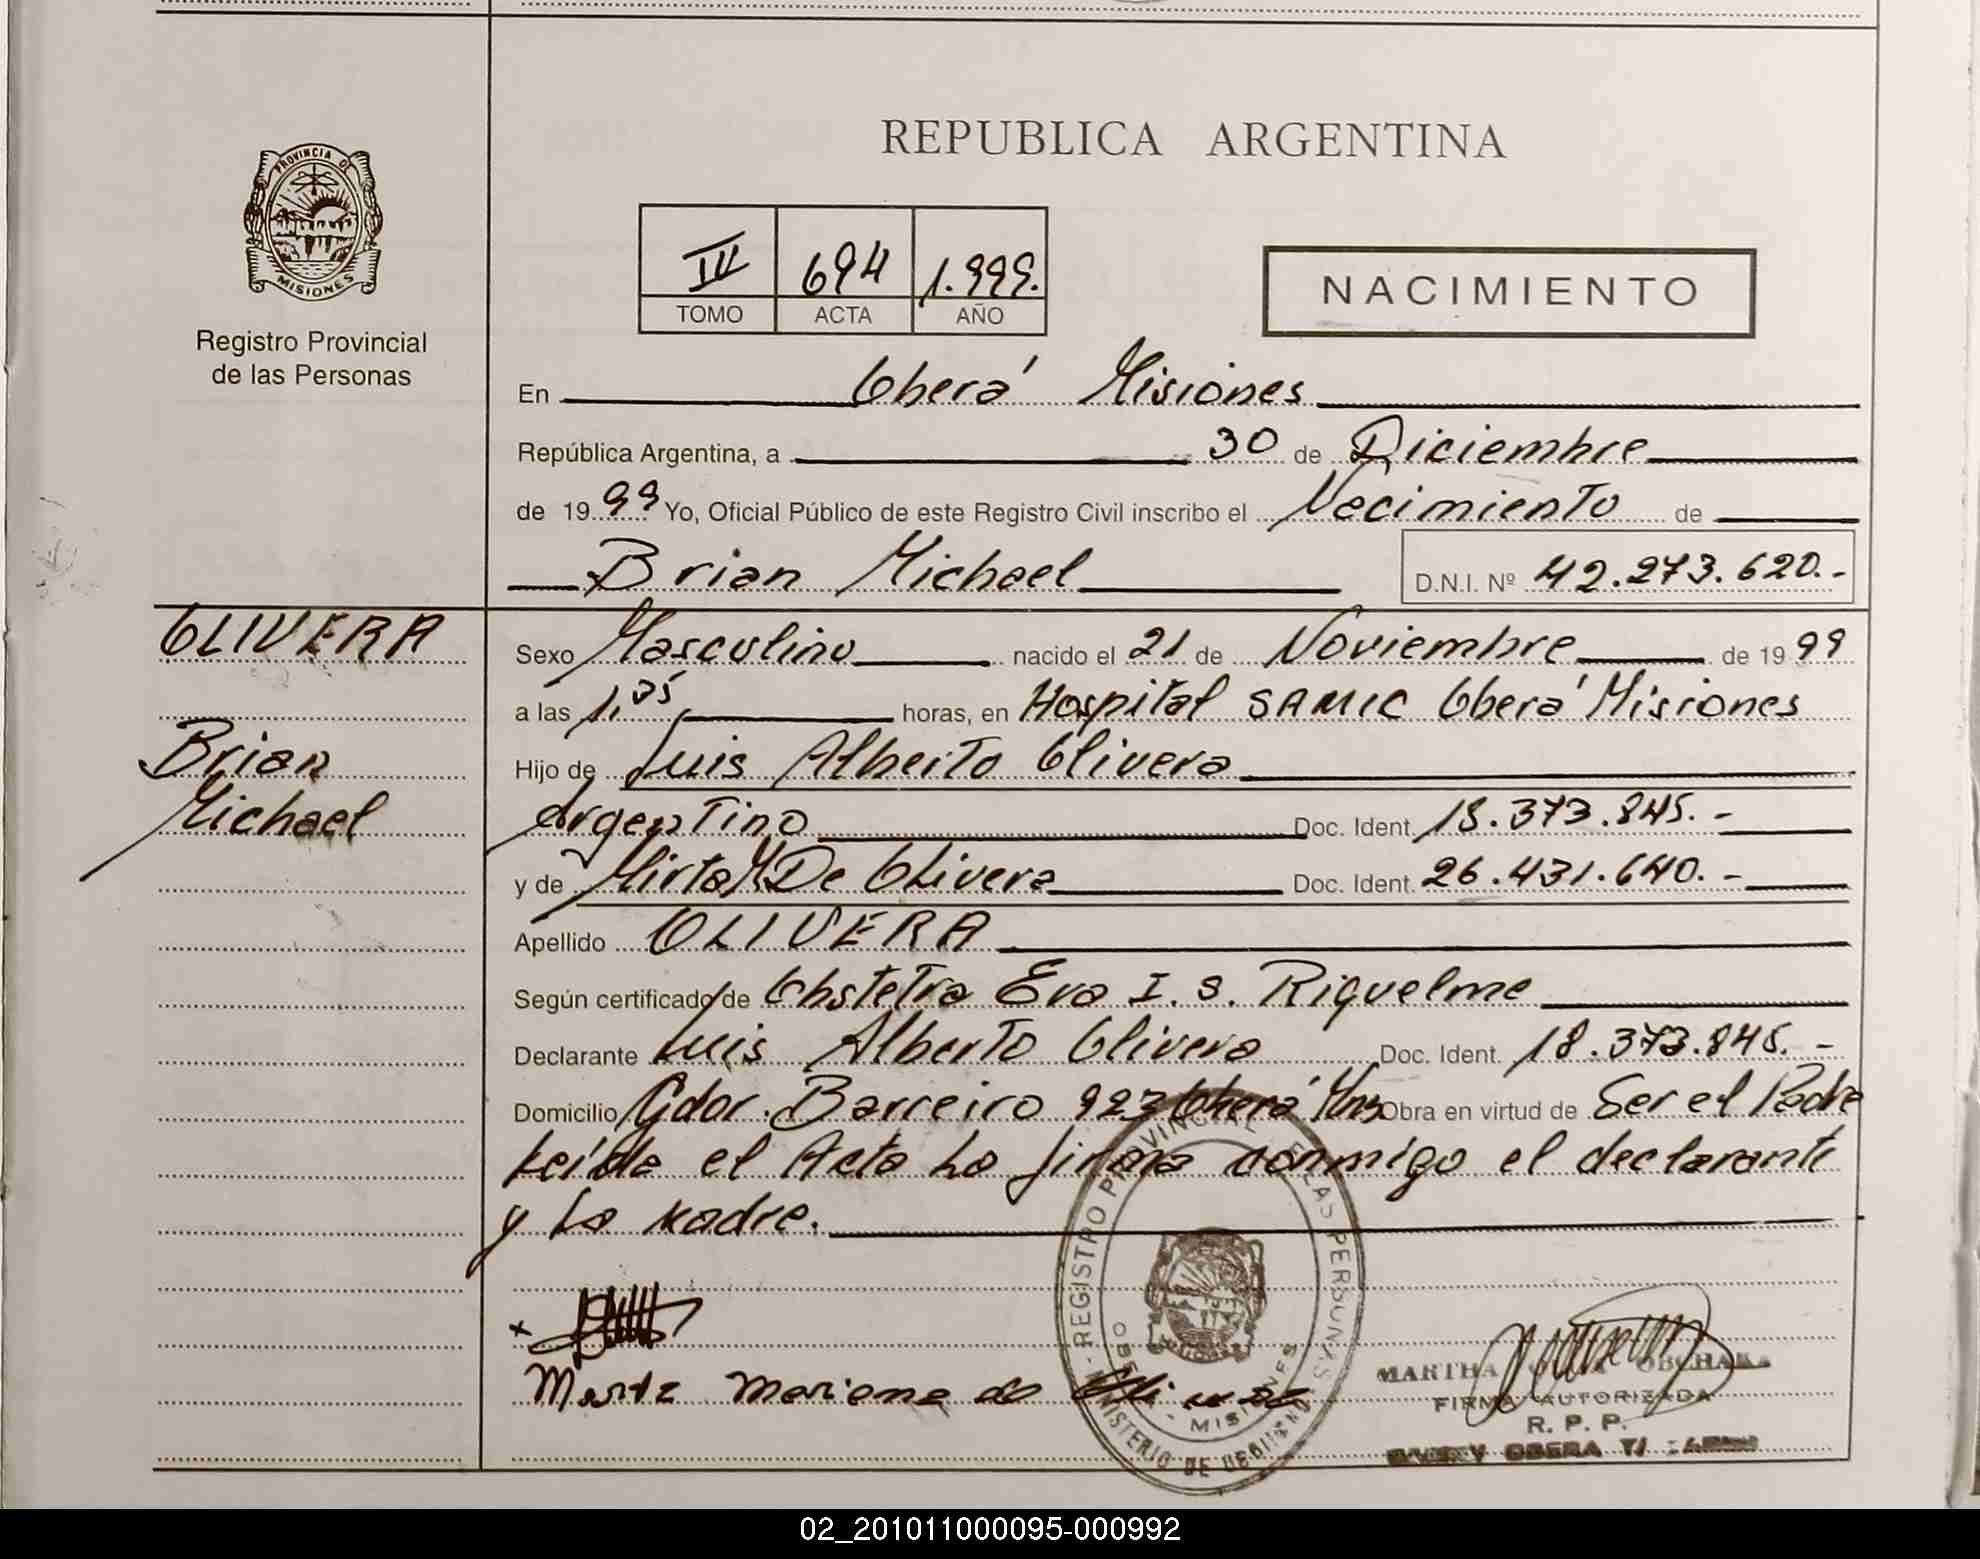 REPUBLICA ARGENTINA
PROVINCIA DE
MISIONES
Registro Provincial
de las Personas
IV 694 1.999.
TOMO ACTA AÑO
NACIMIENTO
En Oberá Misiones
República Argentina, a 30 de Diciembre
de 1999 Yo, Oficial Público de este Registro Civil inscribo el Nacimiento de
Brian Michael D.N.I. Nº 42.273.620.-
OLIVERA
Brian
Michael
Sexo Masculino nacido el 21 de Noviembre de 1999
a las 1,35 horas, en Hospital SAMIC Oberá Misiones
Hijo de Luis Alberto Olivera
Argentino Doc. Ident. 18.373.845.-
y de Mirta M. De Olivera Doc. Ident. 26.431.640.-
Apellido OLIVERA
Según certificado de Obstetra Eva I. S. Riquelme
Declarante Luis Alberto Olivera Doc. Ident. 18.373.845.-
Domicilio Gdor. Barreiro 923 Oberá Mns Obra en virtud de Ser el Padre
Leída el Acta La firma conmigo el declarante
y La madre.
x
REGISTRO PROVINCIAL DE LAS PERSONAS
OBERA - MISIONES
MINISTERIO DE GOBIERNO
MARTHA OBCHAKA
FIRMA AUTORIZADA
R. P. P.
OBERA
02_201011000095-000992